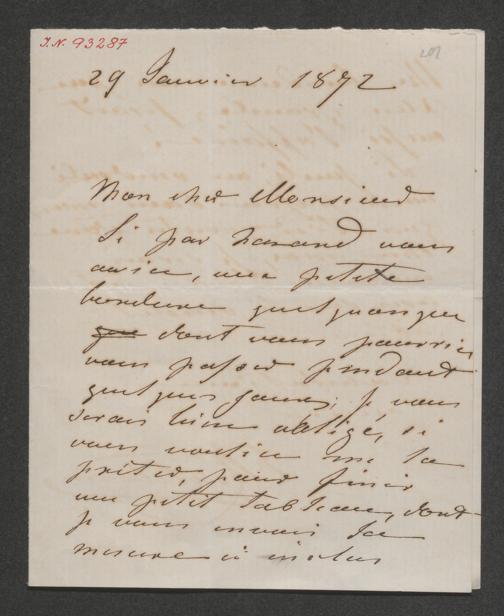 I.N. 93287
201
29 Janvier 1872
Mon cher Monsieur
Si par hasard vous
aviez, une petite
bordure quelquonque
que dont vous pourriez
vous passer pendant
quelques jours, je vous
serais bien obligé, si
vous vouliez me la
prêter, pour finir
un petit tableau, dont
je vous envoie la
mesure ci inclus